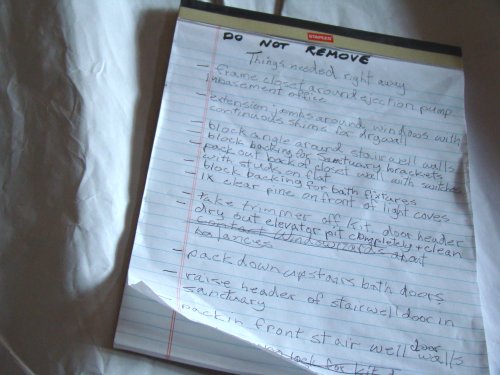 STAPLES
DO NOT REMOVE
Things needed right away
- frame closet around ejection pump
in basement office
- extension jambs around windows with
continuous shims for drywall
- block angle around stairwell walls
- block backing for sanctuary brackets
- pack out back of closet wall with switches
with studs on flat
- block backing for bath fixtures
- 1x clear pine on front of light coves
- take trimmer off kit door header
- dry out elevator pit completely + clean
- contact window about
balances
- pack down upstairs bath doors
- raise header of stairwell door in
sanctuary
- pack in front stairwell door walls
for kit